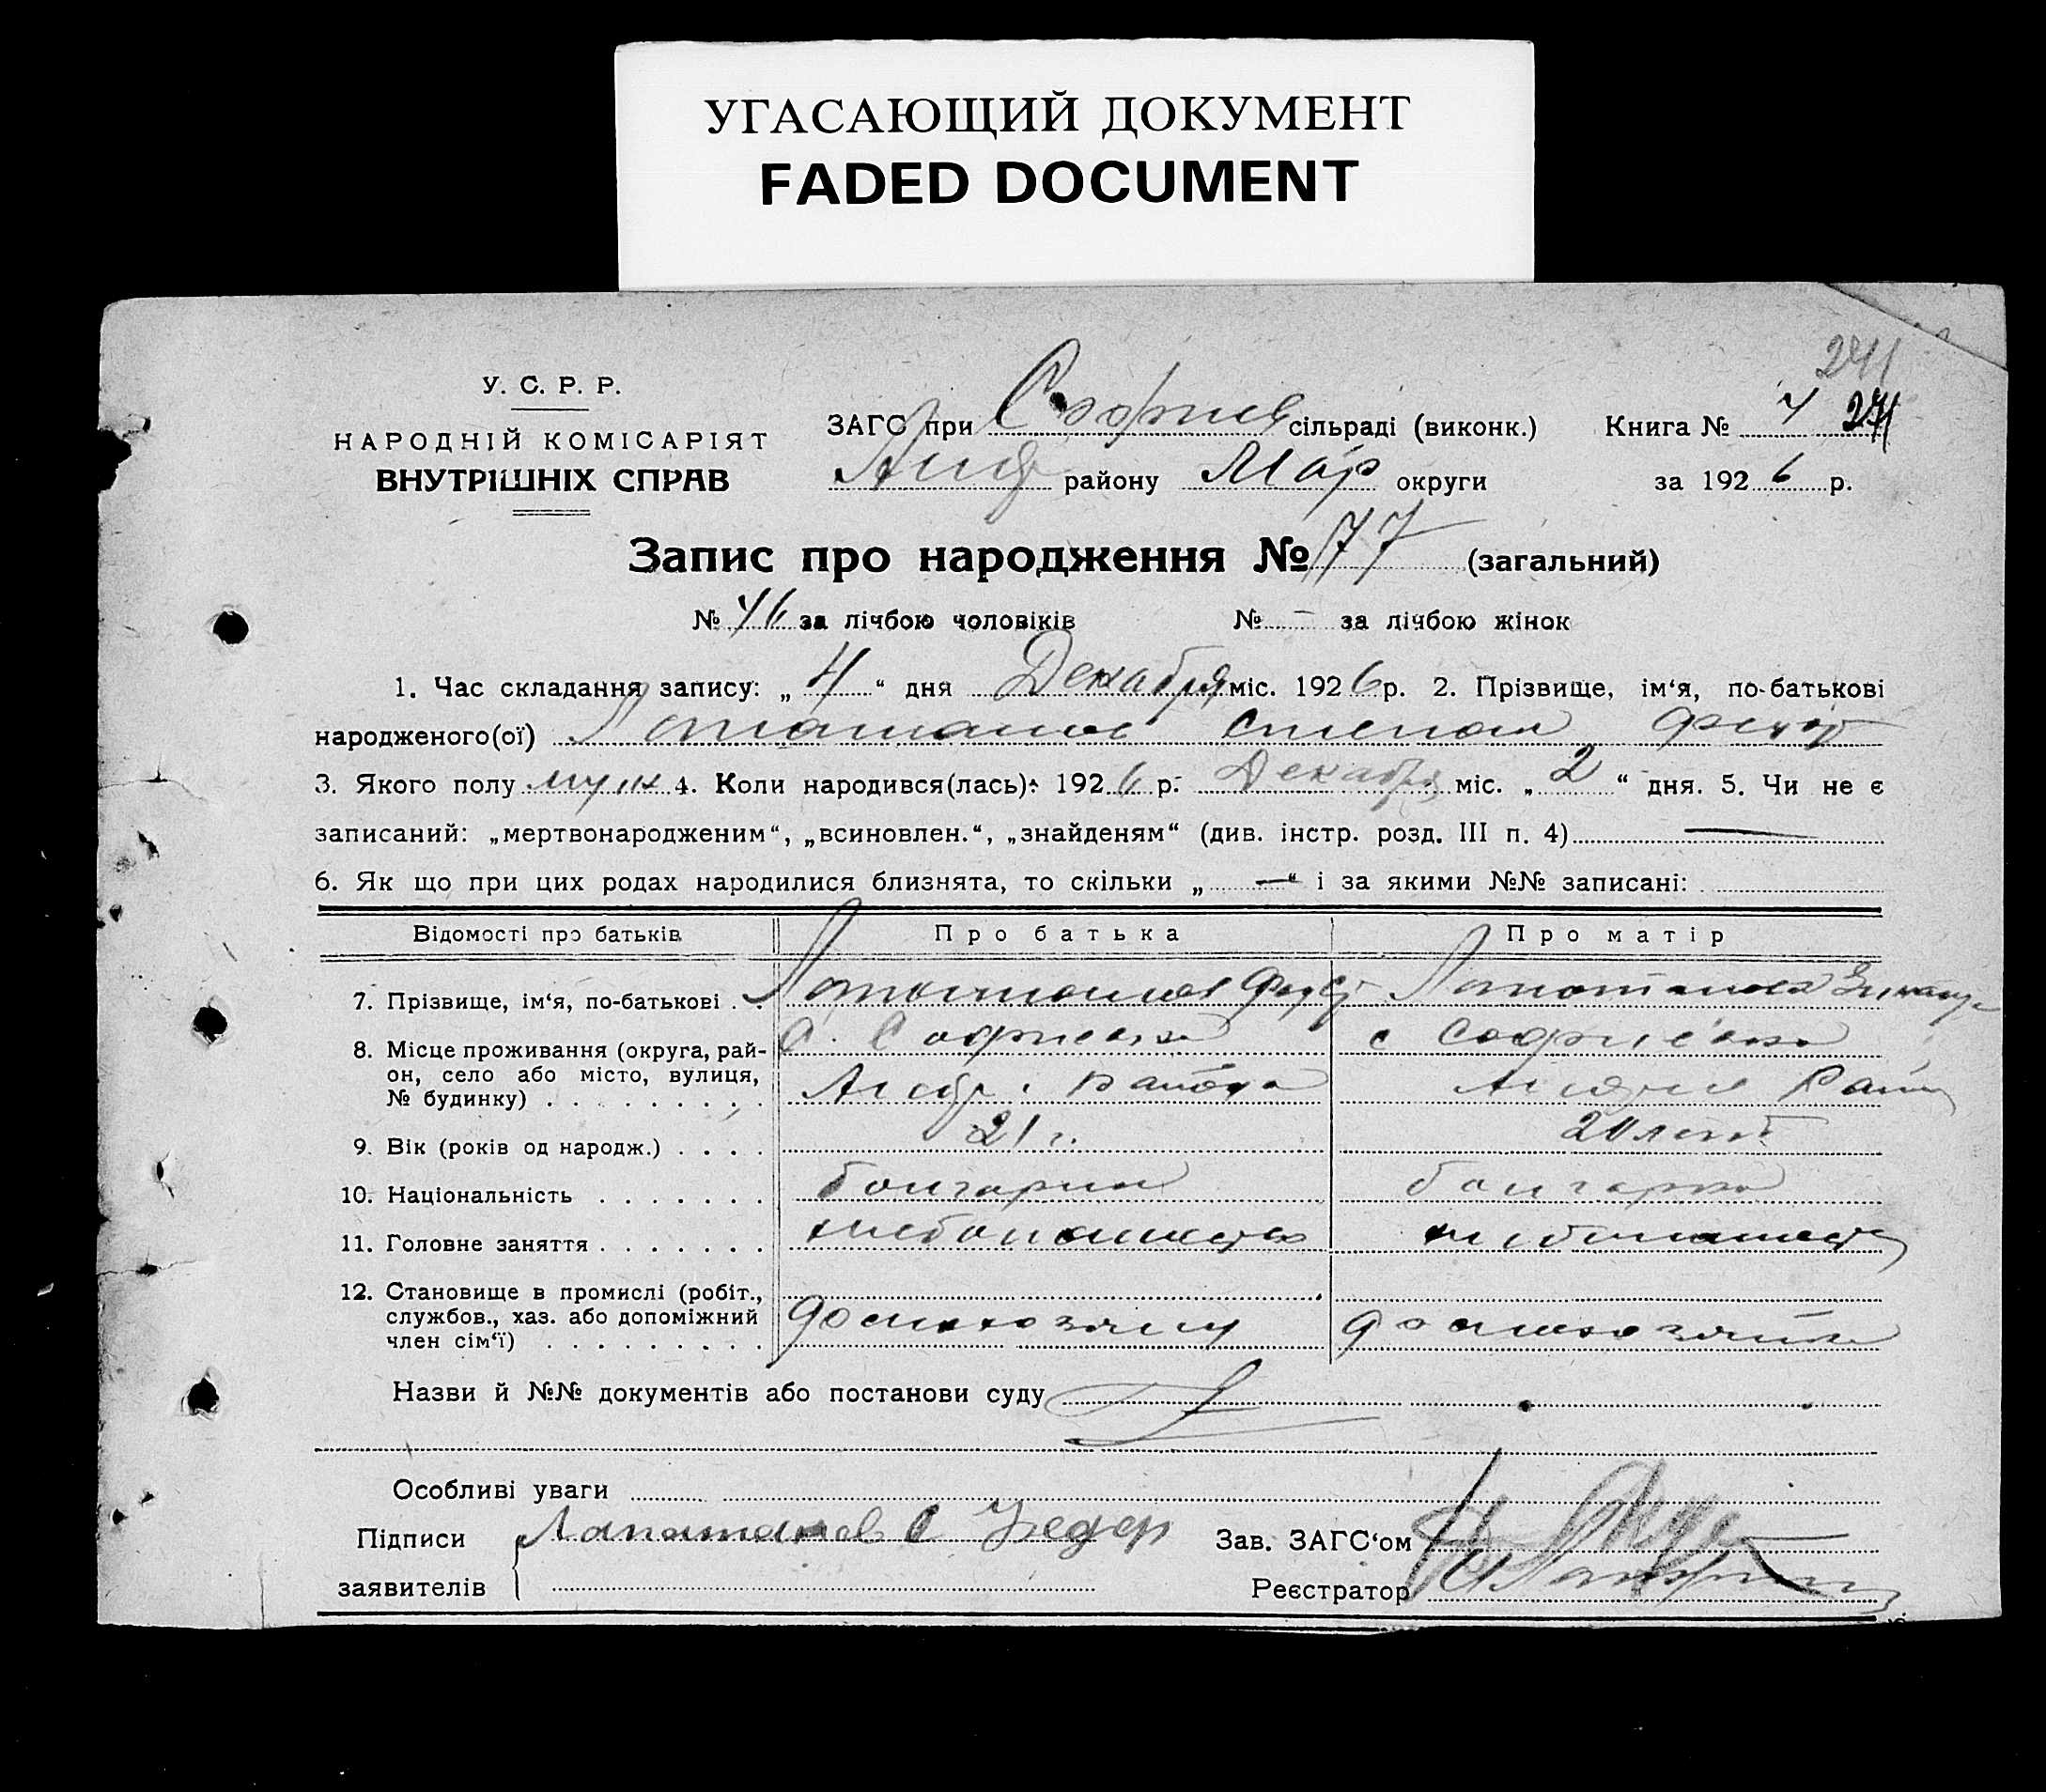 УГАСАЮЩИЙ ДОКУМЕНТ
FADED DOCUMENT
241
У. С. Р. Р.
НАРОДНІЙ КОМІСАРІЯТ
ВНУТРІШНІХ СПРАВ
ЗАГС при Софиев сільраді (виконк.) Книга № 271
району Мар округи за 1926 р.
Запис про народження № 77 (загальний)
№ 46 за лічбою чоловіків № – за лічбою жінок
1. Час складання запису: „4“ дня Декабря міс. 1926 р. 2. Прізвище, ім‘я, по-батькові
народженого(ої) Лапатанов Степан Федор
3. Якого полу муж 4. Коли народився(лась): 1926 р. Декабря міс. „2“ дня. 5. Чи не є
записаний: „мертвонародженим“, „всиновлен.“, „знайденям“ (див. інстр. розд. III п. 4) —
6. Як що при цих родах народилися близнята, то скільки „—“ і за якими №№ записані:
Відомості про батьків Про батька Про матір
7. Прізвище, ім‘я, по-батькові . . Лапатанов Федор Лапатанова
8. Місце проживання (округа, рай-он, село або місто, вулиця, № будинку) . . . . . . . . . с. Софиевка Андр. Района с Софиевка Рай
9. Вік (років од народж.) . . . . 21 г. 20 лет
10. Національність . . . . . . . болгарин болгарка
11. Головне заняття . . . . . . . хлебопашество хлебопашество
12. Становище в промислі (робіт., службов., хаз. або допоміжний член сім‘ї) . . . . . . . . . домохозяин домохозяйка
Назви й №№ документів або постанови суду
Особливі уваги
Підписи заявителів Лапатанов С Федер
Зав. ЗАГС‘ом
Реєстратор